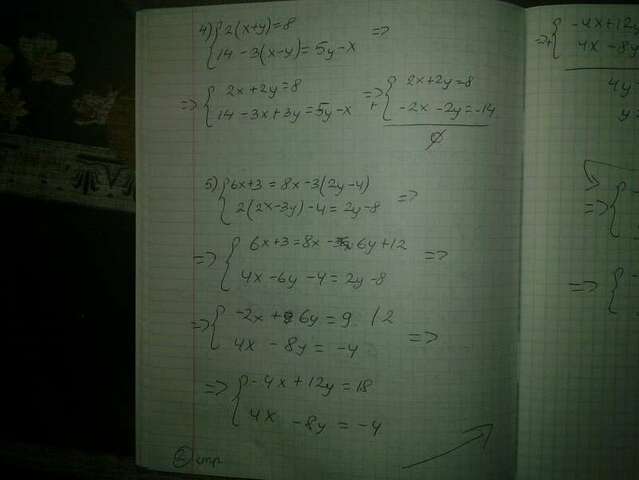 4) { 2(x+y)=8 =>
14-3(x-y)=5y-x
=> { 2x+2y=8 => + { 2x+2y=8
14-3x+3y=5y-x -2x-2y=-14
∅
5) { 6x+3=8x-3(2y-4) =>
2(2x-3y)-4=2y-8
=> { 6x+3=8x-6y+12 =>
4x-6y-4=2y-8
=> { -2x+6y=9 /2 =>
4x-8y=-4
=> { -4x+12y=18
4x-8y=-4
② стр
=>+ { -4x+12y
4x-8y
4y
y=
=> {
=> {